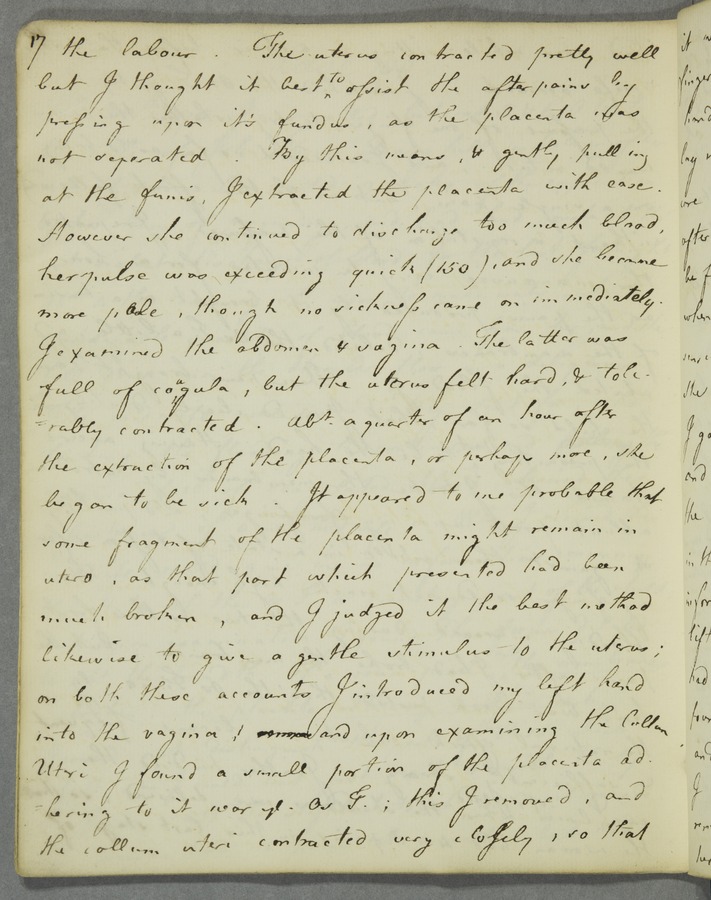 17 the labour. The uterus contracted pretty well
but I thought it best to assist the after pains by
pressing upon it's fundus, as the placenta was
not seperated. By this means, & gently pulling
at the funis, I extracted the placenta with ease.
However she continued to discharge too much blood,
her pulse was exceeding quick (150), and she became
more pale, though no sickness came on immediately.
I examined the abdomen & vagina. The latter was
full of coagula, but the uterus felt hard, & tole-
=rably contracted. Abt. a quarter of an hour after
the extraction of the placenta, or perhaps more, she
began to be sick. It appeared to me probable that
some fragment of the placenta might remain in
utero, as that part which presented had been
much broken, and I judged it the best method
likewise to give a gentle stimulus to the uterus;
on both these accounts I introduced my left hand
into the vagina, and upon examining the Collum
Uteri I found a small portion of the placenta ad-
=hering to it near ye. Os T.; this I removed, and
the collum uteri contracted very closely, so that
it
finger
hand
lay
after
be
when
she
I
and
the
in
had
and
I